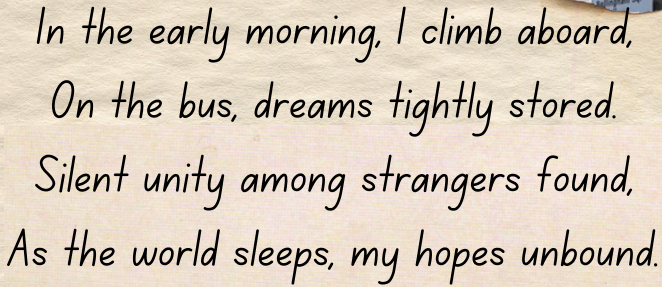 In the early morning, I climb aboard,
On the bus, dreams tightly stored.
Silent unity among strangers found,
As the world sleeps, my hopes unbound.